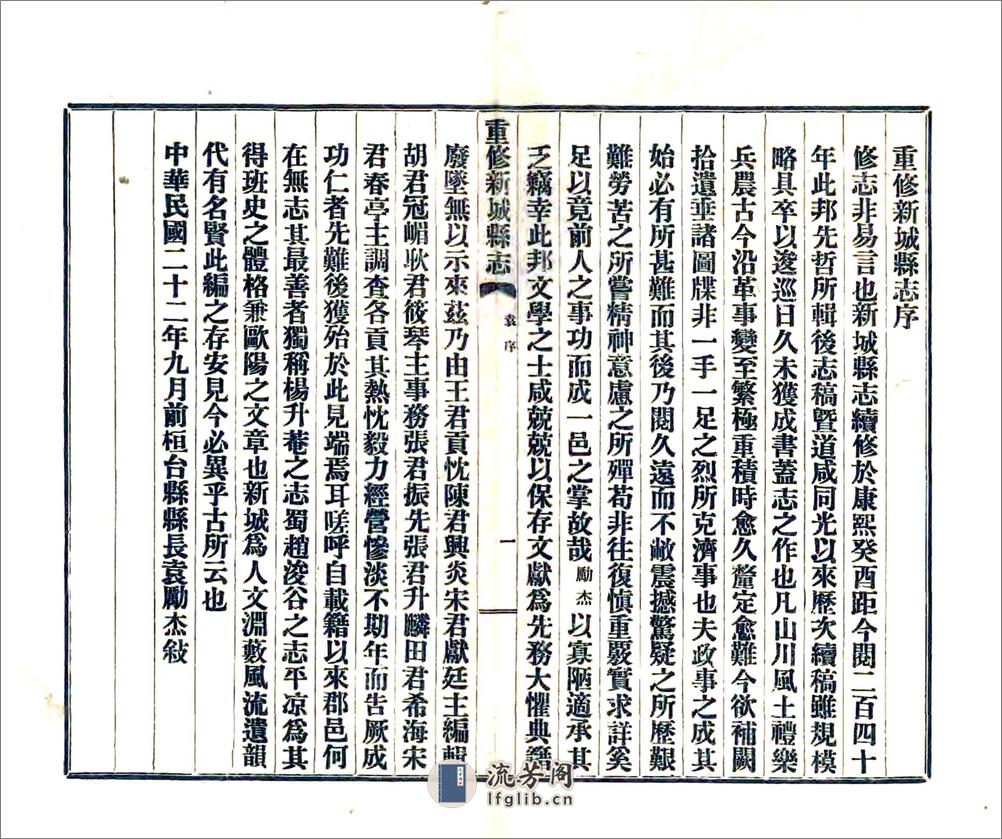 重修新城縣志序
修志非易言也新城縣志續修於康熙癸酉距今閱二百四十
年此邦先哲所輯後志稿暨道咸同光以來歷次續稿雖規模
略具卒以逡巡日久未獲成書蓋志之作也凡山川風土禮樂
兵農古今沿革事變至繁極重積時愈久釐定愈難今欲補闕
拾遺垂諸圖牒非一手一足之烈所克濟事也夫政事之成其
始必有所甚難而其後乃閱久遠而不敝震撼驚疑之所歷艱
難勞苦之所嘗精神意慮之所殫苟非往復慎重覈實求詳奚
足以竟前人之事功而成一邑之掌故哉勵杰以寡陋適承其
乏竊幸此邦文學之士咸兢兢以保存文獻為先務大懼典籍
重修新城縣志 袁序 一
廢墜無以示來茲乃由王君貢忱陳君興炎宋君獻廷主編輯
胡君冠嵋耿君筱琴主事務張君振先張君升麟田君希海宋
君春亭主調查各貢其熱忱毅力經營慘淡不期年而告厥成
功仁者先難後獲殆於此見端焉耳嗟呼自載籍以來郡邑何
在無志其最善者獨稱楊升菴之志蜀趙浚谷之志平凉為其
得班史之體格兼歐陽之文章也新城為人文淵藪風流遺韻
代有名賢此編之存安見今必異乎古所云也
中華民國二十二年九月前桓台縣縣長袁勵杰敍
流芳閣
lfglib.cn